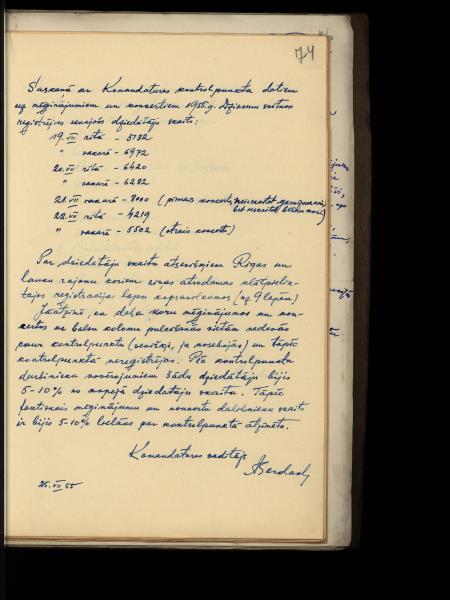 74
Saskaņā ar Komandatūras kontrolpunkta datiem
uz mēģinājumiem un koncertiem 1955.g. Dziesmu svētkos
reģistrējies sekojošs dziedātāju skaits:
19.VII rītā - 5732
" vakarā - 6972
20.VII rītā - 6420
" vakarā - 6282
21.VII vakarā - 8000 (pirmais koncerts,
bet neskaitot bērnu kori)
22.VII rītā - 4219
" vakarā - 5502 (otrais koncerts)
Par dziedātāju skaitu atsevišķiem Rīgas un
lauku rajonu koriem ziņas atrodamas klātpielik-
tajos reģistrācijas lapu kopsavilkumos (uz 9 lapām)
Jāatzīmē, ka daļa koru mēģinājumos un kon-
certos no kolonu pulcēšanās vietām nedevās
caur kontrolpunktu (sevišķi, ja nosebojās) un tāpēc
kontrolpunktā nereģistrējās. Pēc kontrolpunkta
darbinieku novērojumiem šādu dziedātāju bijis
5-10% no kopējā dziedātāju skaita. Tāpēc
faktiskais mēģinājumu un koncertu dalībnieku skaits
ir bijis 5-10% lielāks par kontrolpunktā atzīmēto.
Komandatūras vadītājs
25.VII 55